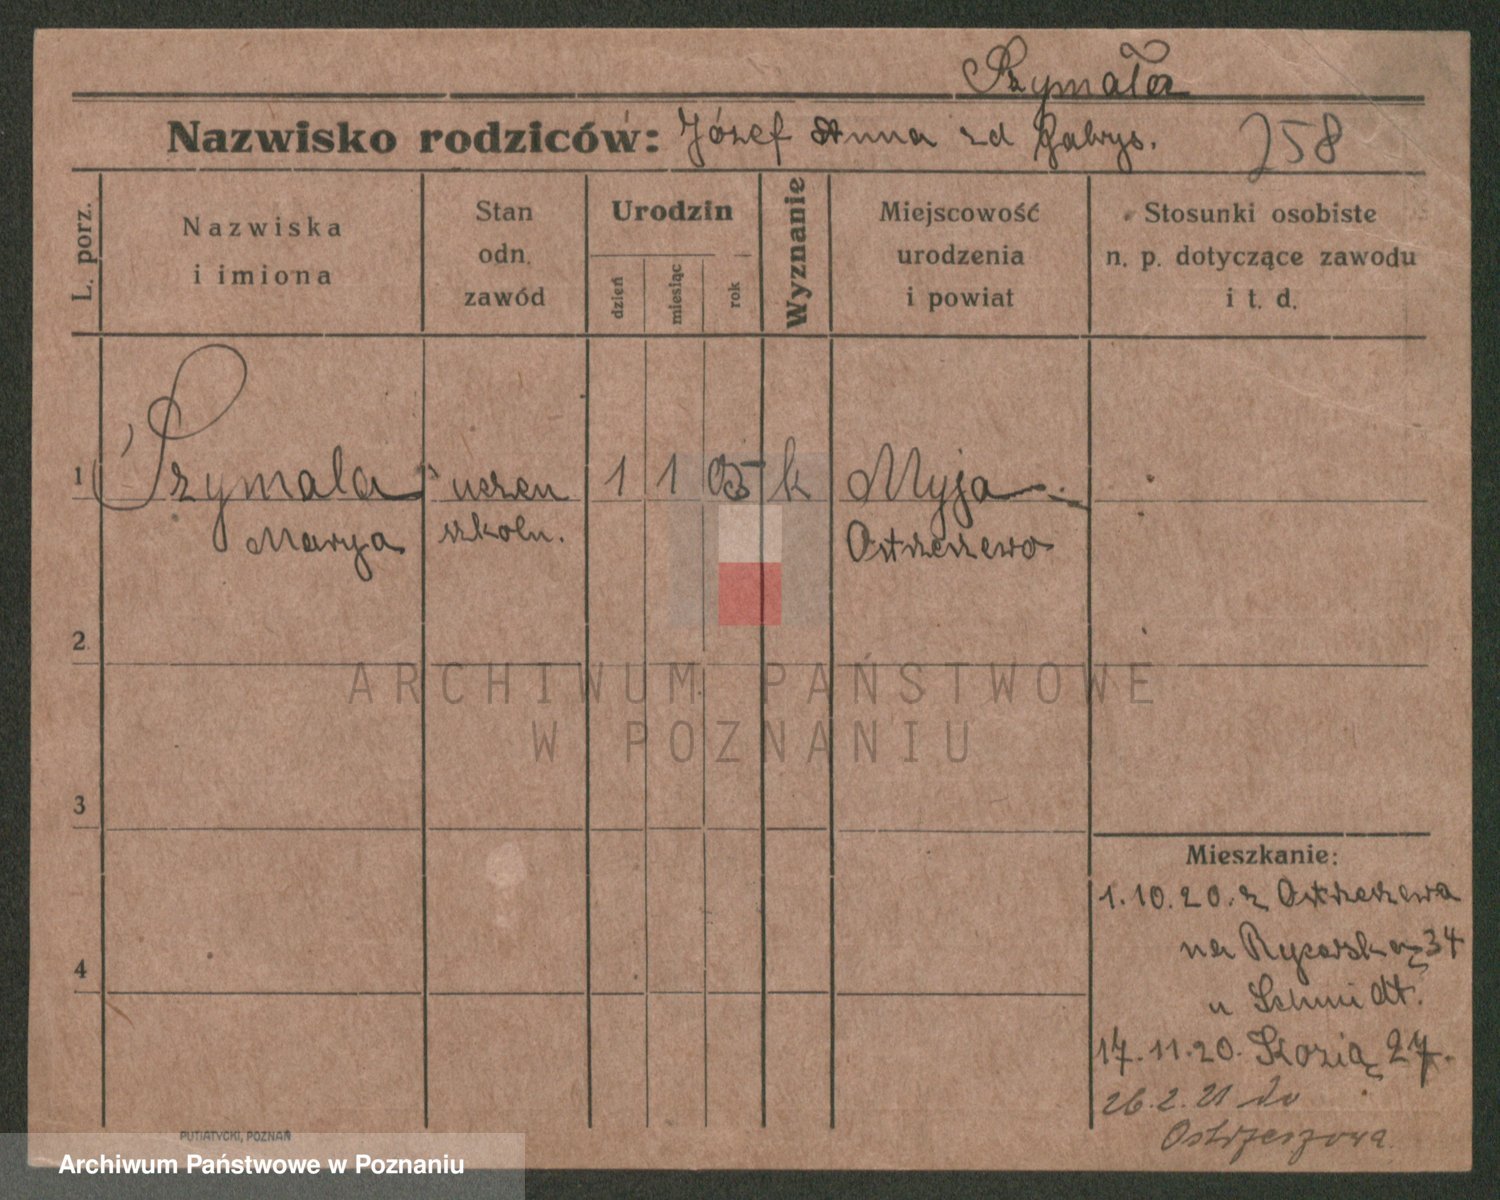 Szymała
Nazwisko rodziców: Józef Anna zd Gabrys.
258
L. porz.
Nazwiska
i imiona
Stan
odn.
zawód
Urodzin
dzień
miesiąc
rok
Wyznanie
Miejscowość
urodzenia
i powiat
Stosunki osobiste
n. p. dotyczące zawodu
i t. d.
1 Szymala uczen 1 1 05 k Myja
Marya szkoln. Ostrzeszewo
2
3
4
Mieszkanie:
1.10.20. z Ostrzeszewa
na Rycerską 34
u Schmidt.
17.11.20. Kozią 27.
26.2.21 do
Ostrzeszowa
PUTIATYCKI, POZNAŃ
ARCHIWUM PAŃSTWOWE
W POZNANIU
Archiwum Państwowe w Poznaniu